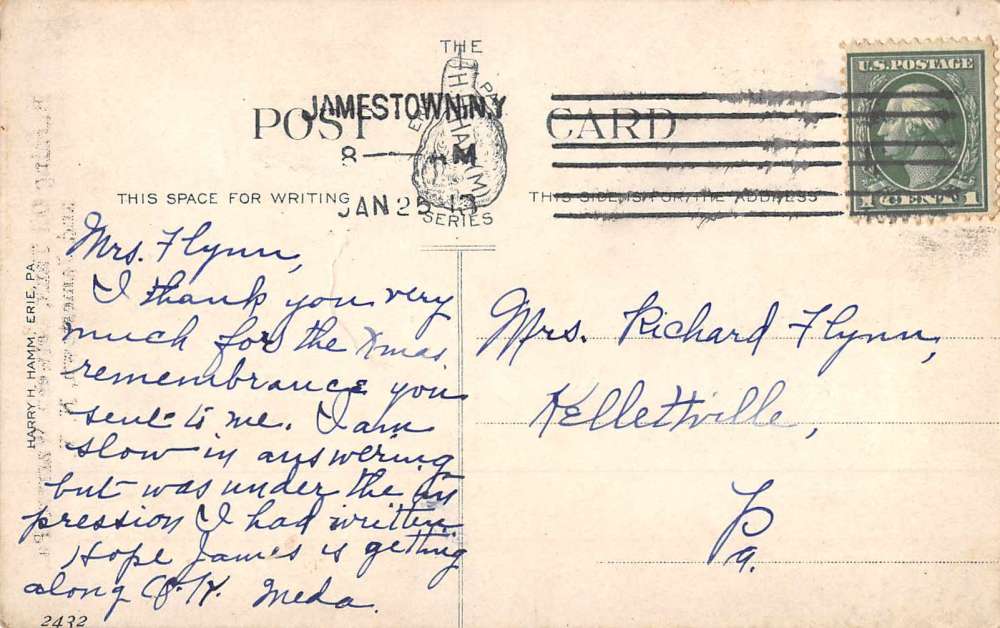 THE
HHHAMM
ERIE PA.
SERIES
POST CARD
JAMESTOWN, N.Y.
8 — AM
JAN 25
THIS SPACE FOR WRITING
THIS SIDE IS FOR THE ADDRESS
U.S. POSTAGE
1 CENT 1
Mrs. Flynn,
I thank you very
much for the Xmas
remembrance you
sent to me. I am
slow in answering
but was under the im
pression I had written.
Hope James is getting
along O.K. Meda.
Mrs. Richard Flynn,
Kellettville,
Pa.
HARRY H. HAMM, ERIE, PA.
2432